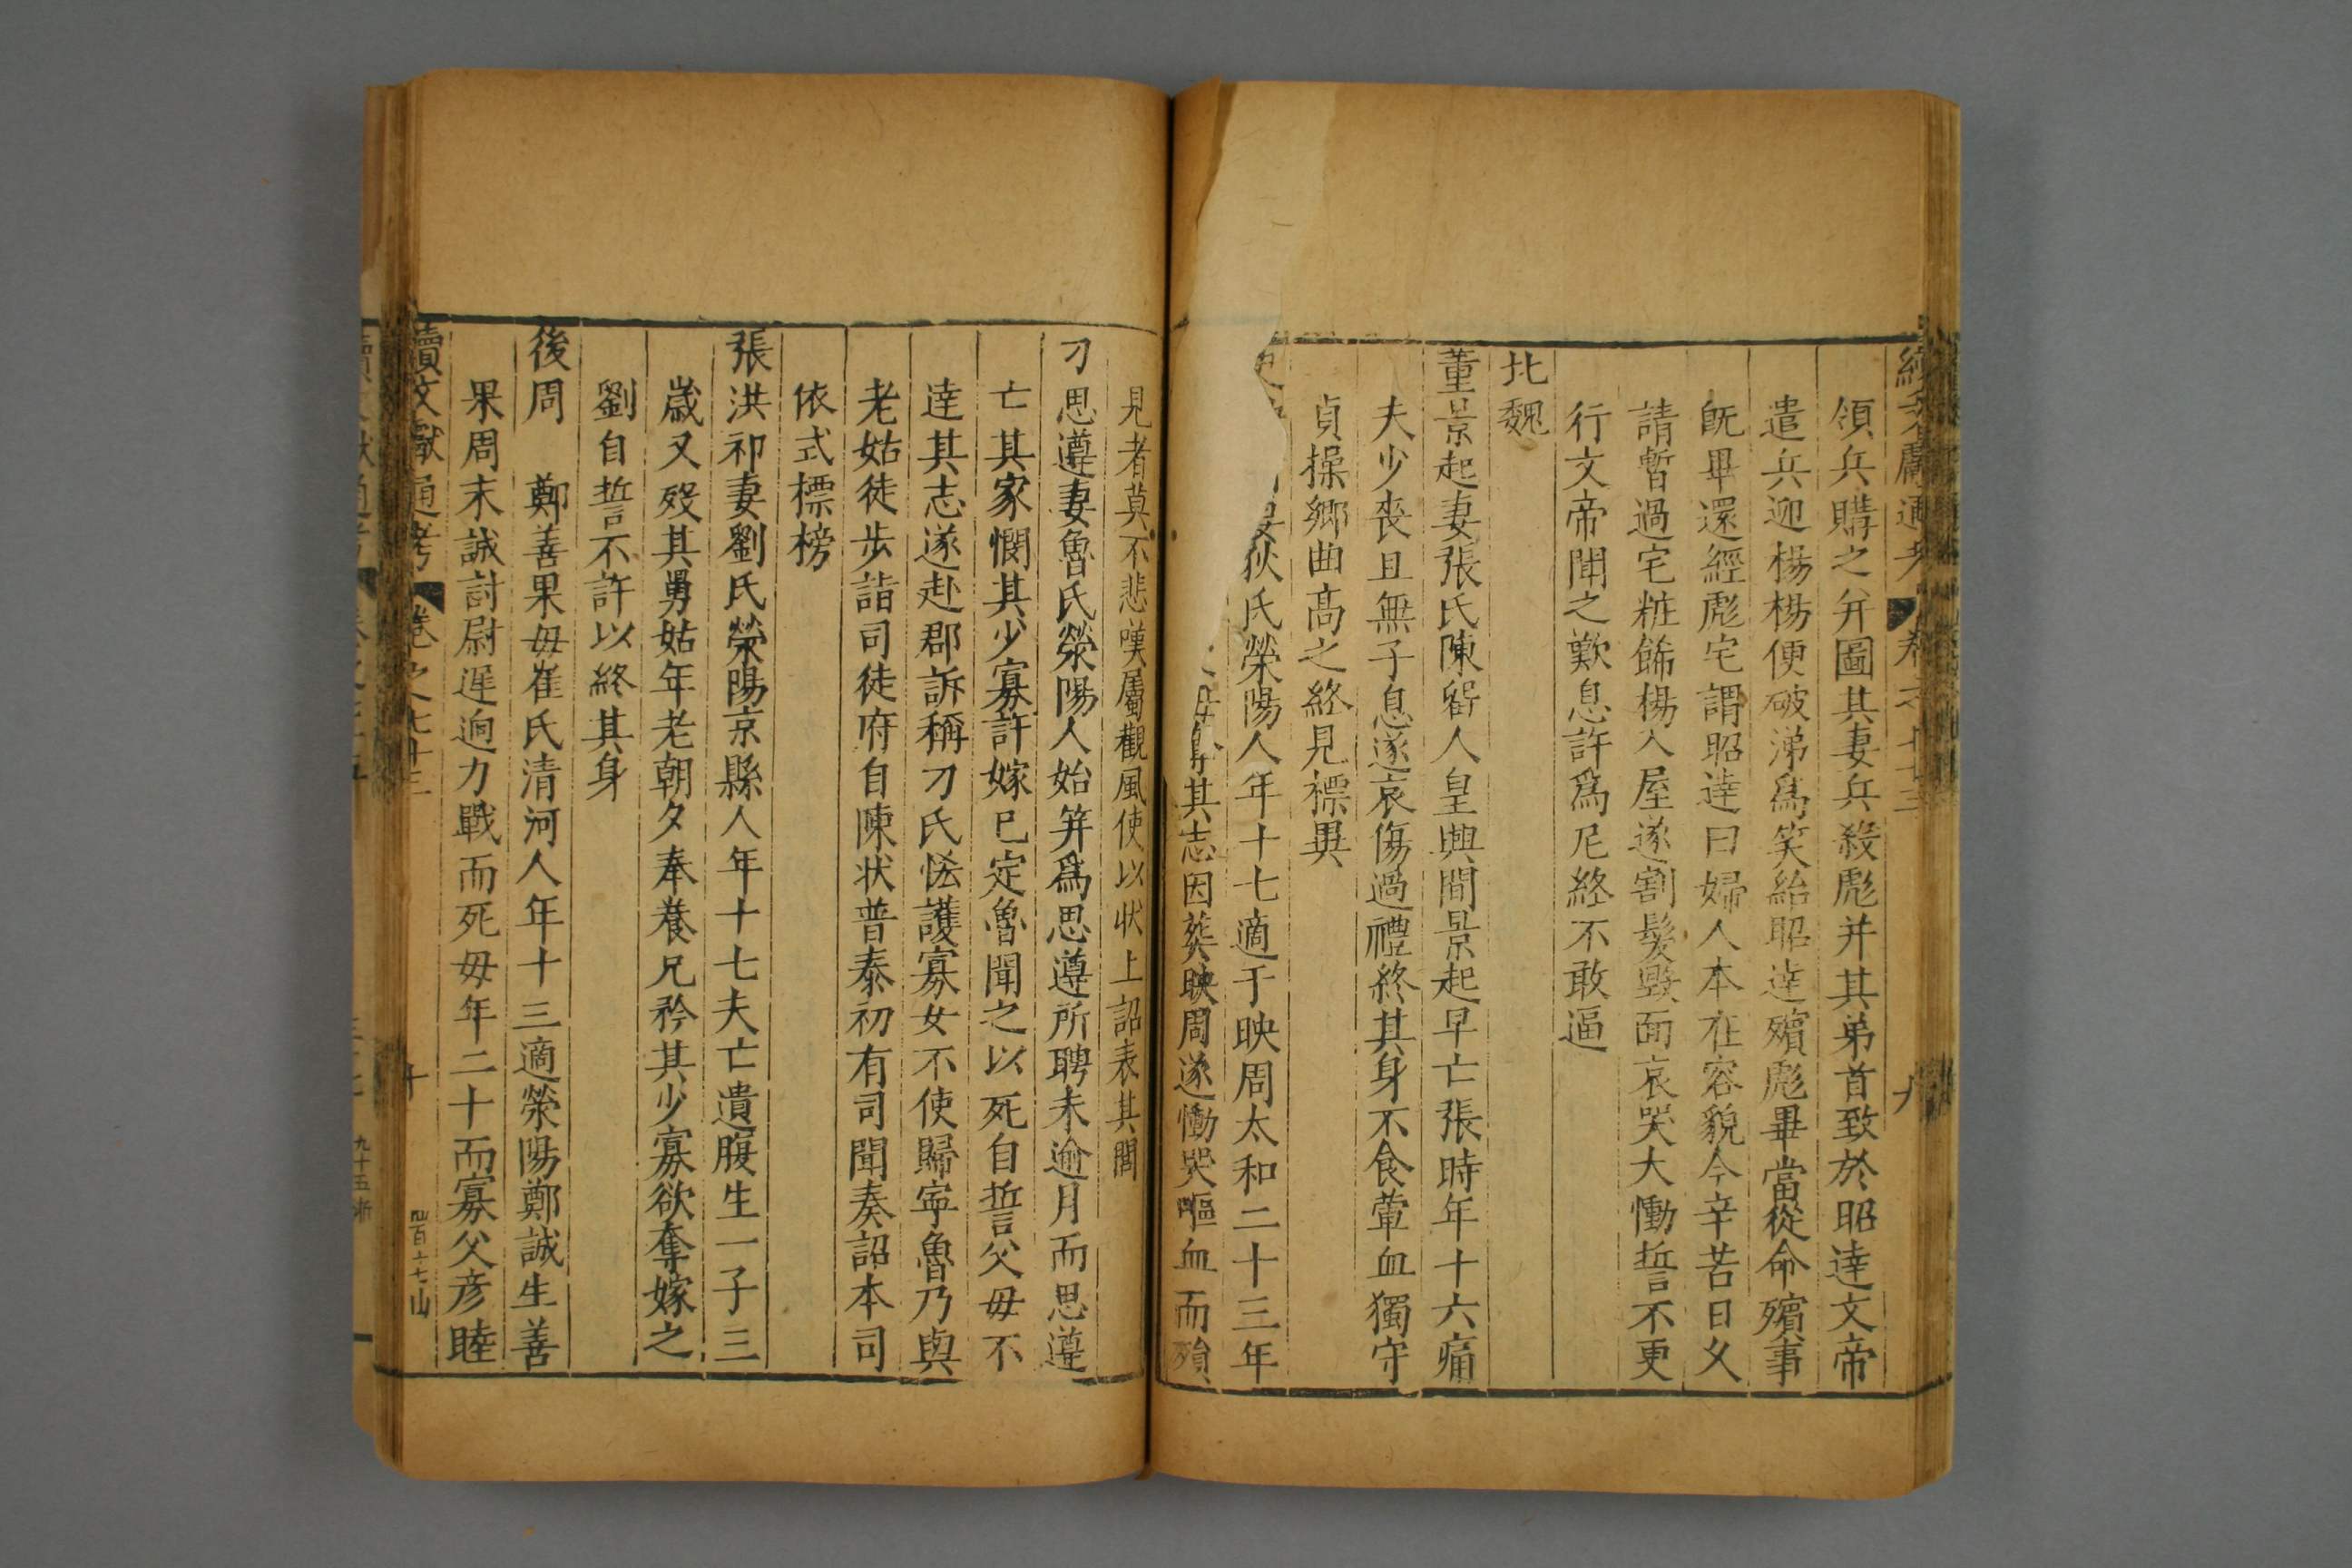 續文獻通考 卷之七十三 九
領兵購之并圖其妻兵殺彪并其弟首致於昭達文帝
遣兵迎楊楊便破涕爲笑紿昭達殯彪畢當從命殯事
旣畢還經彪宅謂昭達曰婦人本在容貌今辛苦日久
請暫過宅粧餙楊入屋遂割髮毀面哀哭大慟誓不更
行文帝聞之歎息許爲尼終不敢逼
北魏
董景起妻張氏陳留人皇興間景起早亡張時年十六痛
夫少喪且無子息遂哀傷過禮終其身不食葷血獨守
貞操鄉曲高之終見標異
狄氏滎陽人年十七適于映周太和二十三年
其志因葬映周遂慟哭嘔血而殞
見者莫不悲嘆屬觀風使以狀上詔表其閭
刁思遵妻魯氏滎陽人始笄爲思遵所聘未逾月而思遵
亡其家憫其少寡許嫁已定魯聞之以死自誓父毋不
達其志遂赴郡訴稱刁氏恡護寡女不使歸寧魯乃與
老姑徒步詣司徒府自陳狀普泰初有司聞奏詔本司
依式標榜
張洪祁妻劉氏滎陽京縣人年十七夫亡遺腹生一子三
歳又殁其舅姑年老朝夕奉養兄矜其少寡欲奪嫁之
劉自誓不許以終其身
後周 鄭善果毋崔氏清河人年十三適滎陽鄭誠生善
果周末誠討尉遲迥力戰而死毋年二十而寡父彥睦
續文獻通考 卷之七十三 十